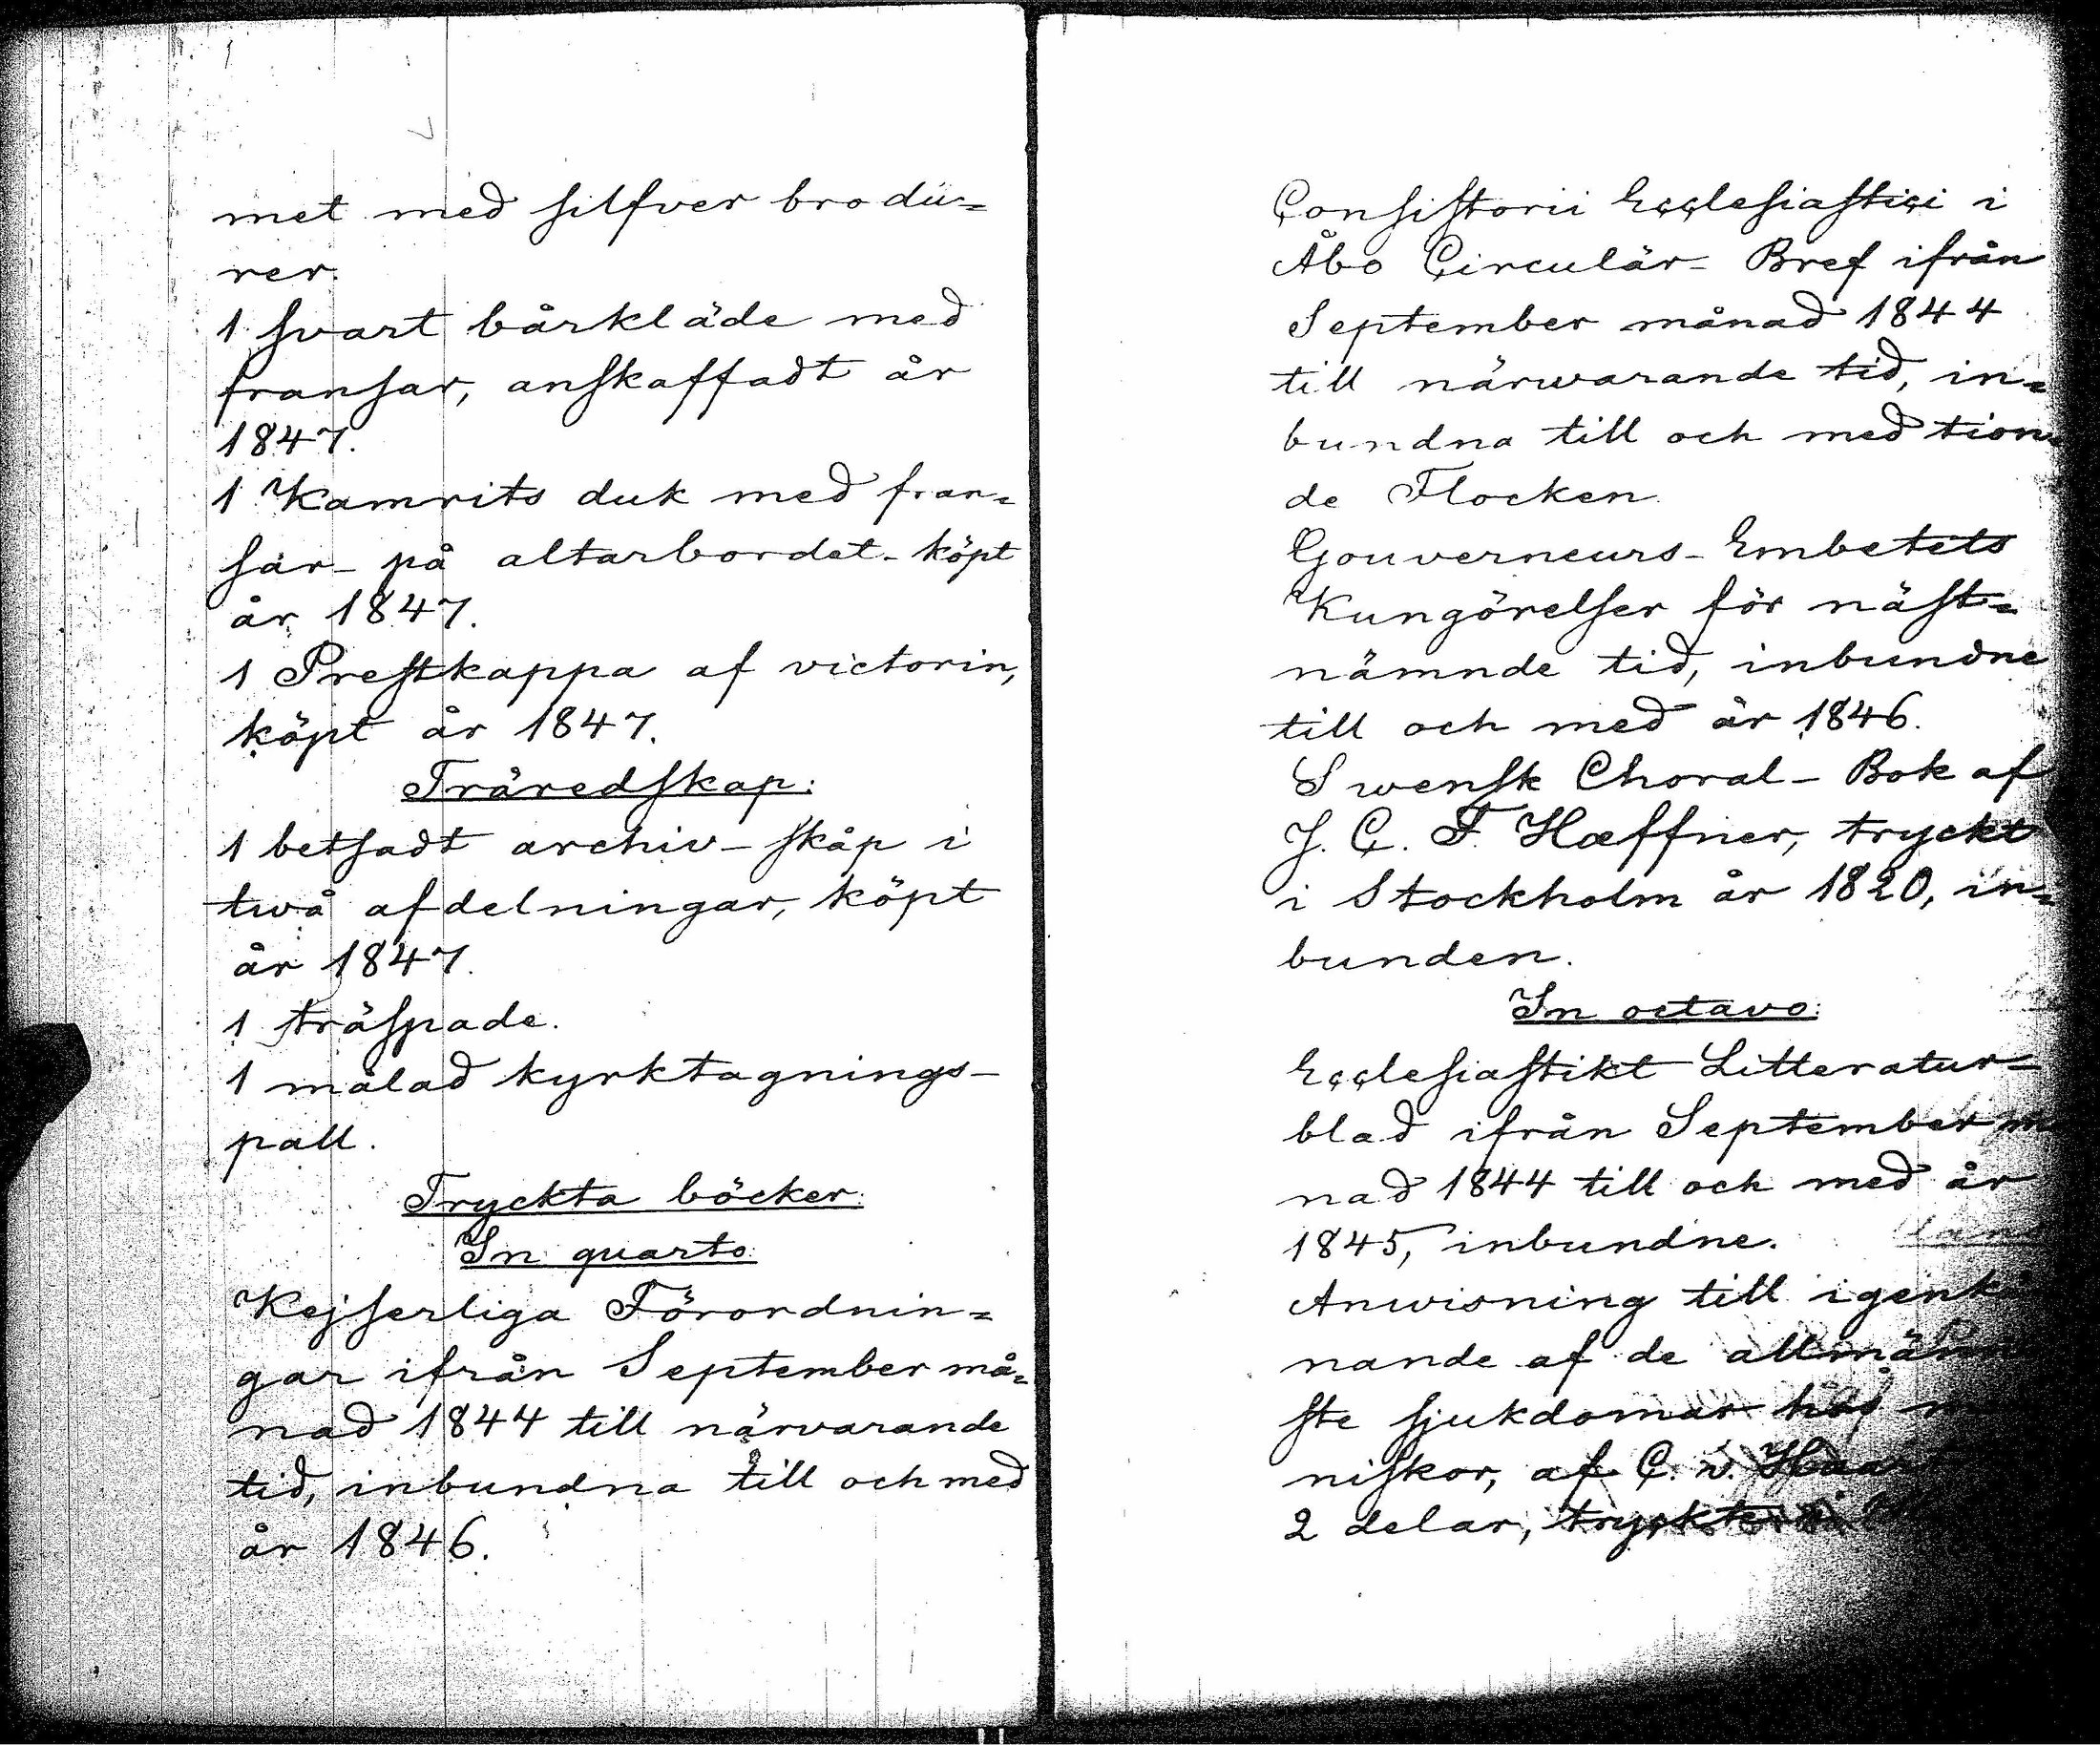 met med silfver brodü=
rer.
1 svart bårkläde med
fransar, anskaffadt år
1847.
1 Kamrits duk med fran=
sar - på altarbordet - köpt
år 1847.
1 Prestkappa af victorin,
köpt år 1847.
Träredskap:
1 betsadt archiv-skåp i
twå afdelningar, köpt
år 1847.
1 träspade.
1 målad kyrktagnings-
pall.
Tryckta böcker:
In quarto:
Kejserliga Förordnin=
gar ifrån September må=
nad 1844 till närvarande
tid, inbundna till och med
år 1846.
Consistorii Ecclesiastici i
Åbo Circulär-Bref ifrån
September månad 1844
till närwarande tid, in=
bundna till och med tion=
de Flocken.
Gouverneurs-Embetets
Kungörelser för näst=
nämnde tid, inbundne
till och med år 1846.
Swensk Choral-Bok af
J. C. F. Hæffner, tryckt
i Stockholm år 1820, in=
bunden.
In octavo:
Ecclesiastikt Litteratur=
blad ifrån September m
nad 1844 till och med år
1845, inbundne.
Anwisning till igenk
nande af de allmänn
ste sjukdomar hos
niskor, af C. v. Haart
2 delar, tryckte i